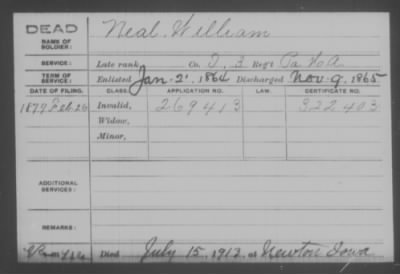 DEAD
NAME OF SOLDIER: Neal, William
SERVICE: Late rank Co. I, 3 Reg't Pa HA
TERM OF SERVICE: Enlisted Jan. 21, 1864 Discharged Nov. 9, 1865
DATE OF FILING. CLASS. APPLICATION NO. LAW. CERTIFICATE NO.
1879 Feb. 26 Invalid, 269413 322403
Widow,
Minor,
ADDITIONAL SERVICES:
REMARKS:
Died July 15, 1912 at Newton Iowa